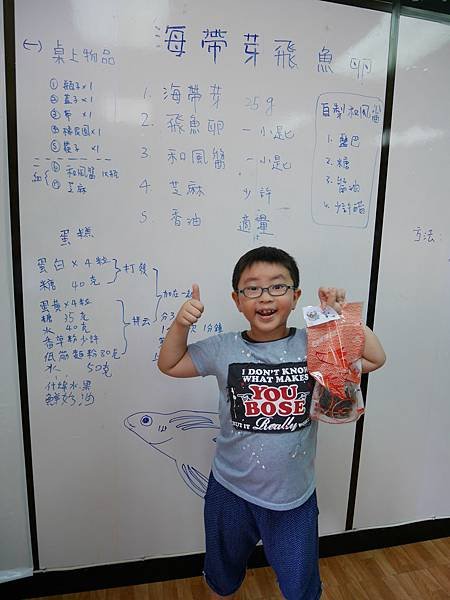 海帶芽飛魚卵
(一) 桌上物品
① 瓶子×1
② 蓋子×1
③ 夢×1
④ 橡皮圈×1
⑤ 筷子×1
和風醬
芝麻
1. 海帶芽 25g
2. 飛魚卵 一小匙
3. 和風醬 一小匙
4. 芝麻 少許
5. 香油 適量
自製和風醬
1. 鹽巴
2. 糖
3. 醬油
4. 少許醋
方法:
蛋糕
蛋白×4粒
糖 40克
打發
蛋黃×4粒
糖 35克
水 40克
香草粉少許
低筋麵粉80克
水 50克
拌勻
加在一起
什錦水果
鮮奶油
I DON'T KNOW
WHAT MAKES
YOU
BOSE
BUT IT Really